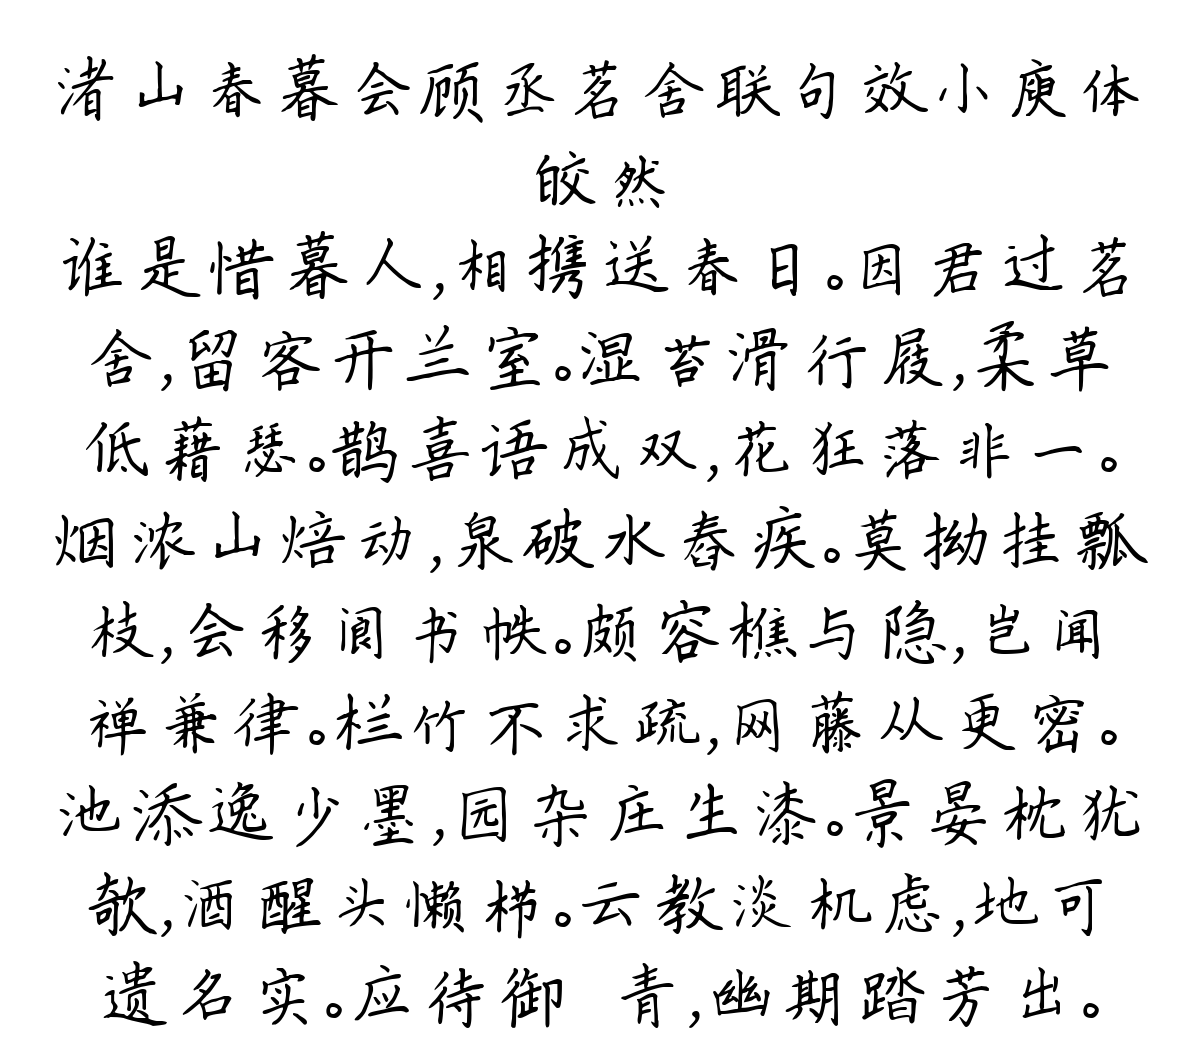 渚山春暮会顾丞茗舍联句效小庾体
皎然
谁是惜暮人,相携送春日。因君过茗
舍,留客开兰室。湿苔滑行屐,柔草
低藉瑟。鹊喜语成双,花狂落非一。
烟浓山焙动,泉破水舂疾。莫拗挂瓢
枝,会移阆书帙。颇容樵与隐,岂闻
禅兼律。栏竹不求疏,网藤从更密。
池添逸少墨,园杂庄生漆。景晏枕犹
欹,酒醒头懒栉。云教淡机虑,地可
遗名实。应待御 青,幽期踏芳出。